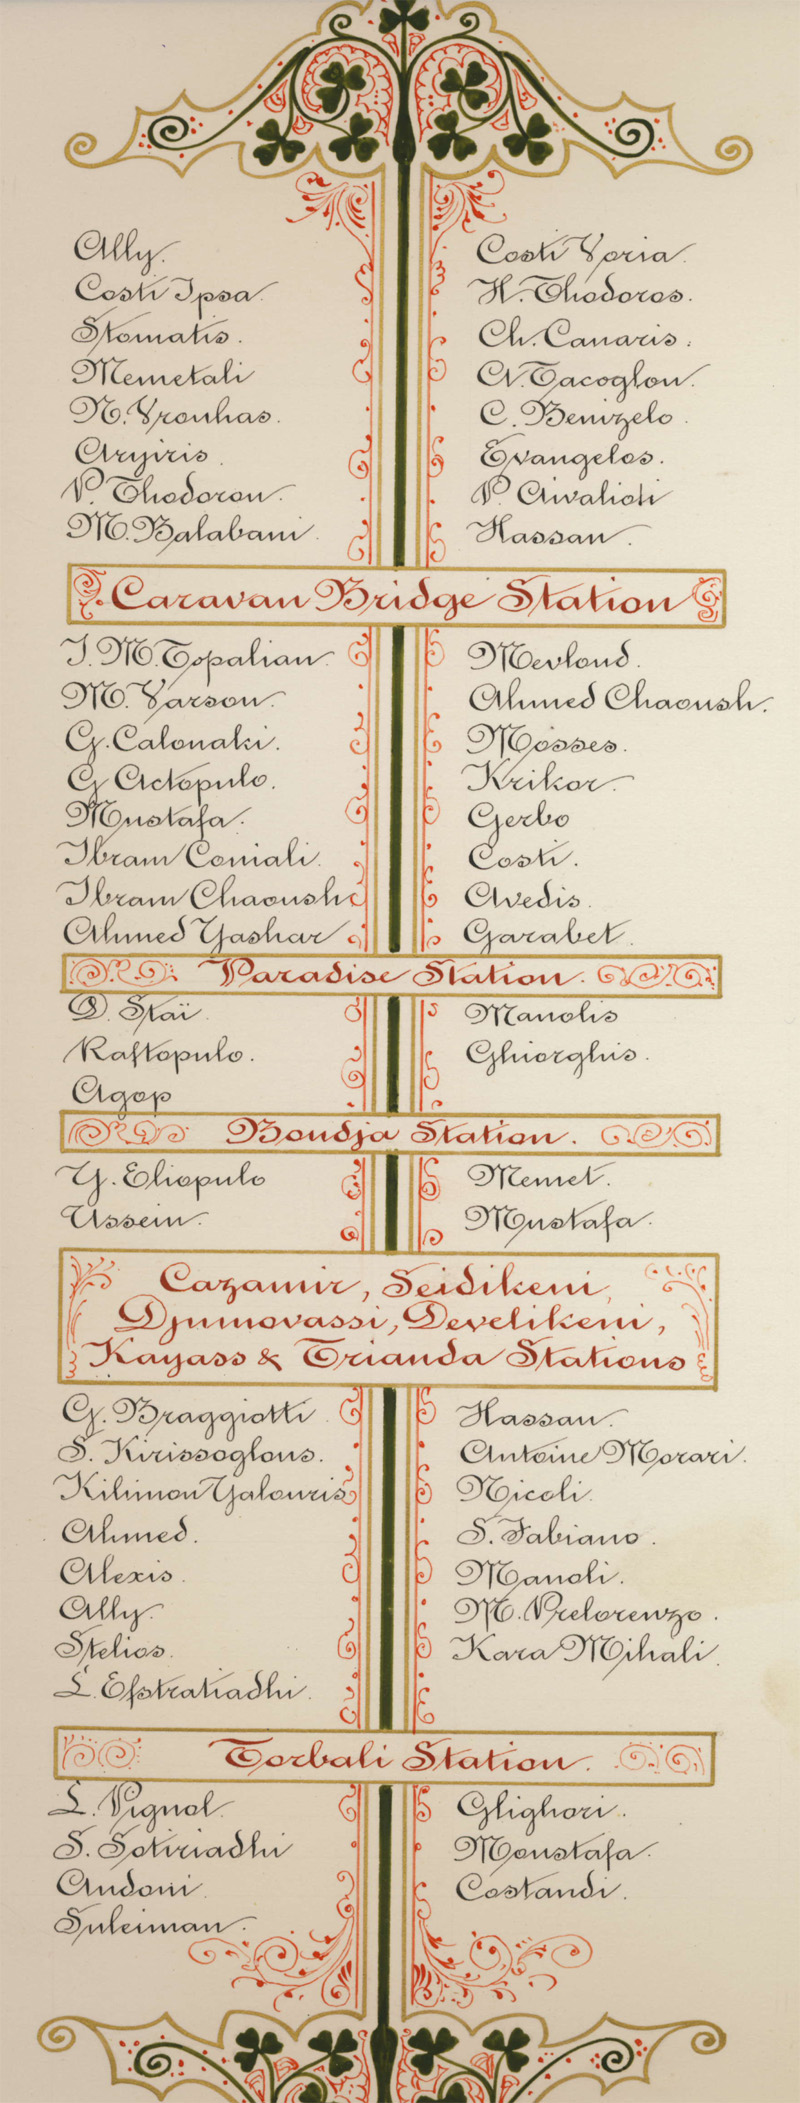 Ally.
Costi Ipsa.
Stomatis.
Memetali
N. Vrouhas.
Aryiris.
P. Thodorou.
M. Balabani.
Costi Voria.
H. Thodoros.
Ch. Canaris.
N. Tacoglou.
C. Benizelo.
Evangelos.
P. Aivalioti
Hassan.
Caravan Bridge Station
I. M. Topalian.
M. Varson.
G. Calonaki.
G Actopulo.
Mustafa.
Ibram Coniali.
Ibram Chaoush
Ahmed Yashar
Mevloud.
Ahmed Chaoush.
Mosses.
Krikor.
Gerbo
Costi.
Avedis.
Garabet.
Paradise Station.
D. Staï.
Raftopulo.
Agop
Manolis
Ghiorghis.
Boudja Station.
Y. Eliopulo
Ussein.
Memet.
Mustafa.
Cazamir, Seidikeni,
Djumovassi, Develikeni,
Kayass & Trianda Stations
G. Braggiotti.
S. Kirissoglous.
Kihimon Yalouris
Ahmed.
Alexis.
Ally.
Stelios.
L. Efstratiadhi.
Hassan.
Antoine Morari.
Nicoli.
S. Fabiano.
Manoli.
M. Prelorenzo.
Kara Mihali.
Torbali Station.
L. Pignol.
S. Sotiriadhi
Andoni.
Suleiman.
Glighori.
Moustafa.
Costandi.